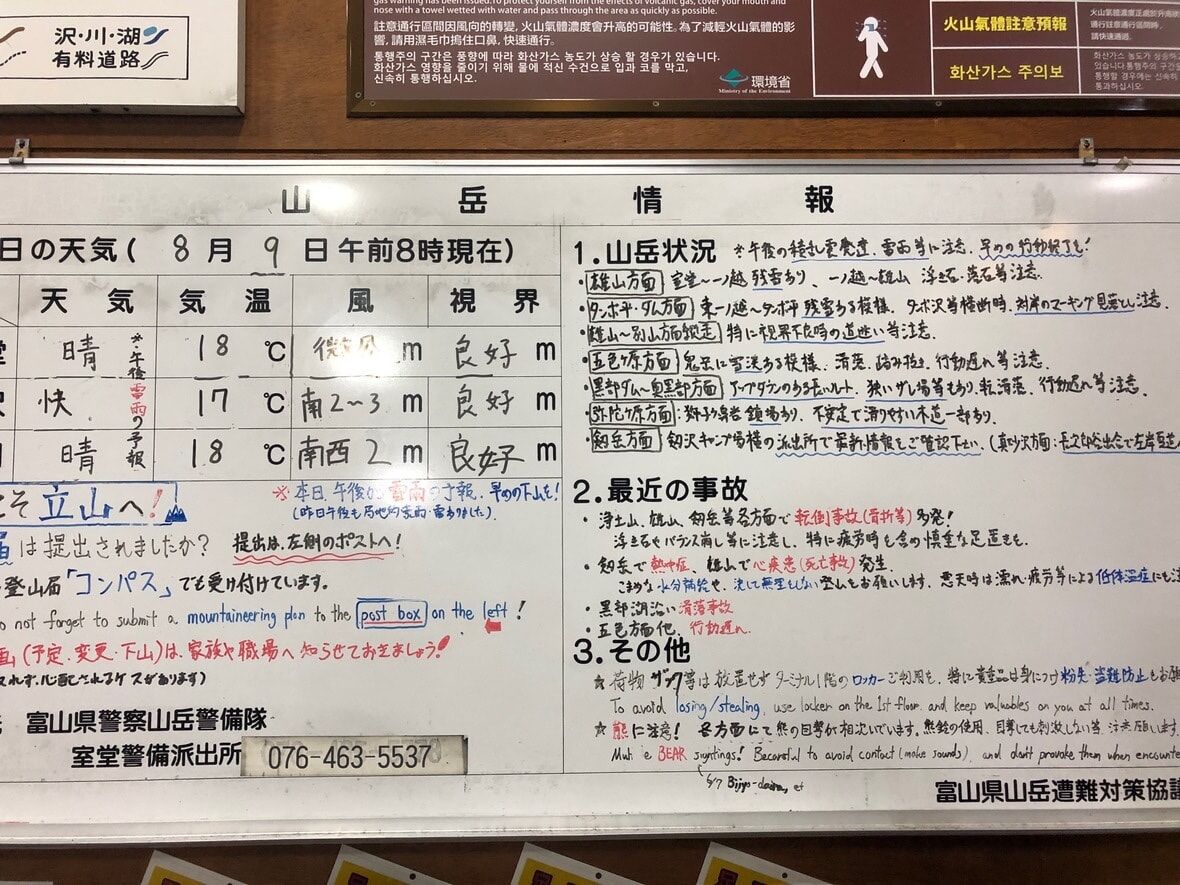 沢・川・湖
有料道路
gas warning has been issued. To protect yourself from the effects of volcanic gas, cover your mouth and
nose with a towel wetted with water and pass through the area as quickly as possible.
註意通行區間因風向的轉變，火山氣體濃度會升高的可能性。為了減輕火山氣體的影
響，請用濕毛巾摀住口鼻，快速通行。
통행주의 구간은 풍향에 따라 화산가스 농도가 상승 할 경우가 있습니다.
화산가스 영향을 줄이기 위해 물에 적신 수건으로 입과 코를 막고,
신속히 통행하십시오.
環境省
Ministry of the Environment
火山氣體註意預報
화산가스 주의보
山岳情報
日の天気( 8月 9日午前8時現在)
天気 気温 風 視界
晴 18℃ 微風 m 良好 m
快 17℃ 南2~3 m 良好 m
晴 18℃ 南西2 m 良好 m
※午後雷雨の予報
こそ立山へ!
※本日、午後から雷雨の予報、早めの下山を!
(昨日午後も局地的豪雨・雷ありました)
は提出されましたか? 提出は、左側のポストへ!
登山届「コンパス」でも受け付けています。
o not forget to submit a mountaineering plan to the post box on the left!
画(予定、変更、下山)は、家族や職場へ知らせておきましょう!
されず、心配されるケースがあります)
富山県警察山岳警備隊
室堂警備派出所 076-463-5537
1.山岳状況 ※午後の積乱雲発達、雷雨等に注意、早めの行動終了を!
・雄山方面 室堂~一ノ越 残雪あり、一ノ越~雄山 浮き石・落石等注意。
・タンボ平・ダム方面 東一ノ越~タンボ平 残雪ある模様、タンボ沢等横断時、対岸のマーキング見落とし注意。
・雄山~別山方面縦走 特に視界不良時の道迷い等注意。
・五色ヶ原方面 鬼岳に雪渓ある模様、滑落、踏み抜き、行動遅れ等注意。
・黒部ダム~奥黒部方面 アップダウンのある長いルート、狭いザレ場等もあり、転滑落、行動遅れ等注意。
・弥陀ヶ原方面:獅子ヶ鼻岩 鎖場あり、不安定で滑りやすい木道一部あり。
・剱岳方面 剱沢キャンプ場横の派出所で最新情報をご確認下さい。(真砂沢方面:長次郎谷出合で左岸
2.最近の事故
・浄土山、雄山、剱岳等各方面で転倒事故(骨折等)多発!
浮き石やバランス崩し等に注意し、特に疲労時も含め慎重な足運びを。
・剱岳で熱中症、雄山で心疾患(死亡事故)発生。
こまめな水分補給や、決して無理をしない登山をお願いします。悪天時は濡れ・疲労等による低体温症にも注
・黒部湖沿い滑落事故
・五色方面他、行動遅れ
3.その他
☆荷物ザック等は放置せずターミナル1階のロッカーご利用を、特に貴重品は身につけ紛失・盗難防止もお願
To avoid losing/stealing, use locker on the 1st floor, and keep valuables on you at all times.
☆熊に注意! 各方面にて熊の目撃が相次いでいます。熊鈴の使用、目撃しても刺激しない等、注意願います。
BEAR sightings! Be careful to avoid contact (make sounds), and don't provoke them when encounte
富山県山岳遭難対策協議